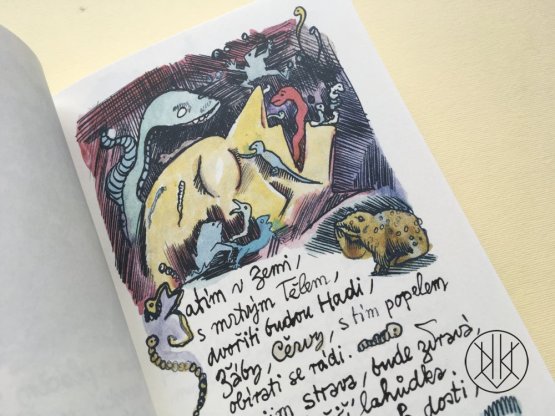 Zatím v zemi,
s mrtvým Tělem,
dvořiti budou Hadi,
Žáby, Červy, s tím popelem
obírati se rádi.
strava, bude zdravá,
lahůdka
dosti